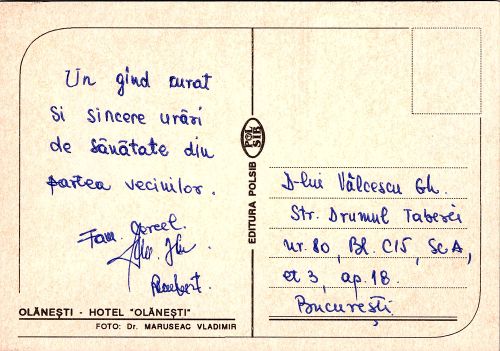 Un gînd curat
și sincere urări
de sănătate din
partea vecinilor.
Fam.
Robert.
OLĂNEȘTI - HOTEL "OLĂNEȘTI"
FOTO: Dr. MARUSEAC VLADIMIR
EDITURA POLSIB
POL
SIB
D-lui Vâlcescu Gh.
Str. Drumul Taberei
nr. 80, Bl. C15, Sc A,
et 3, ap. 18.
București